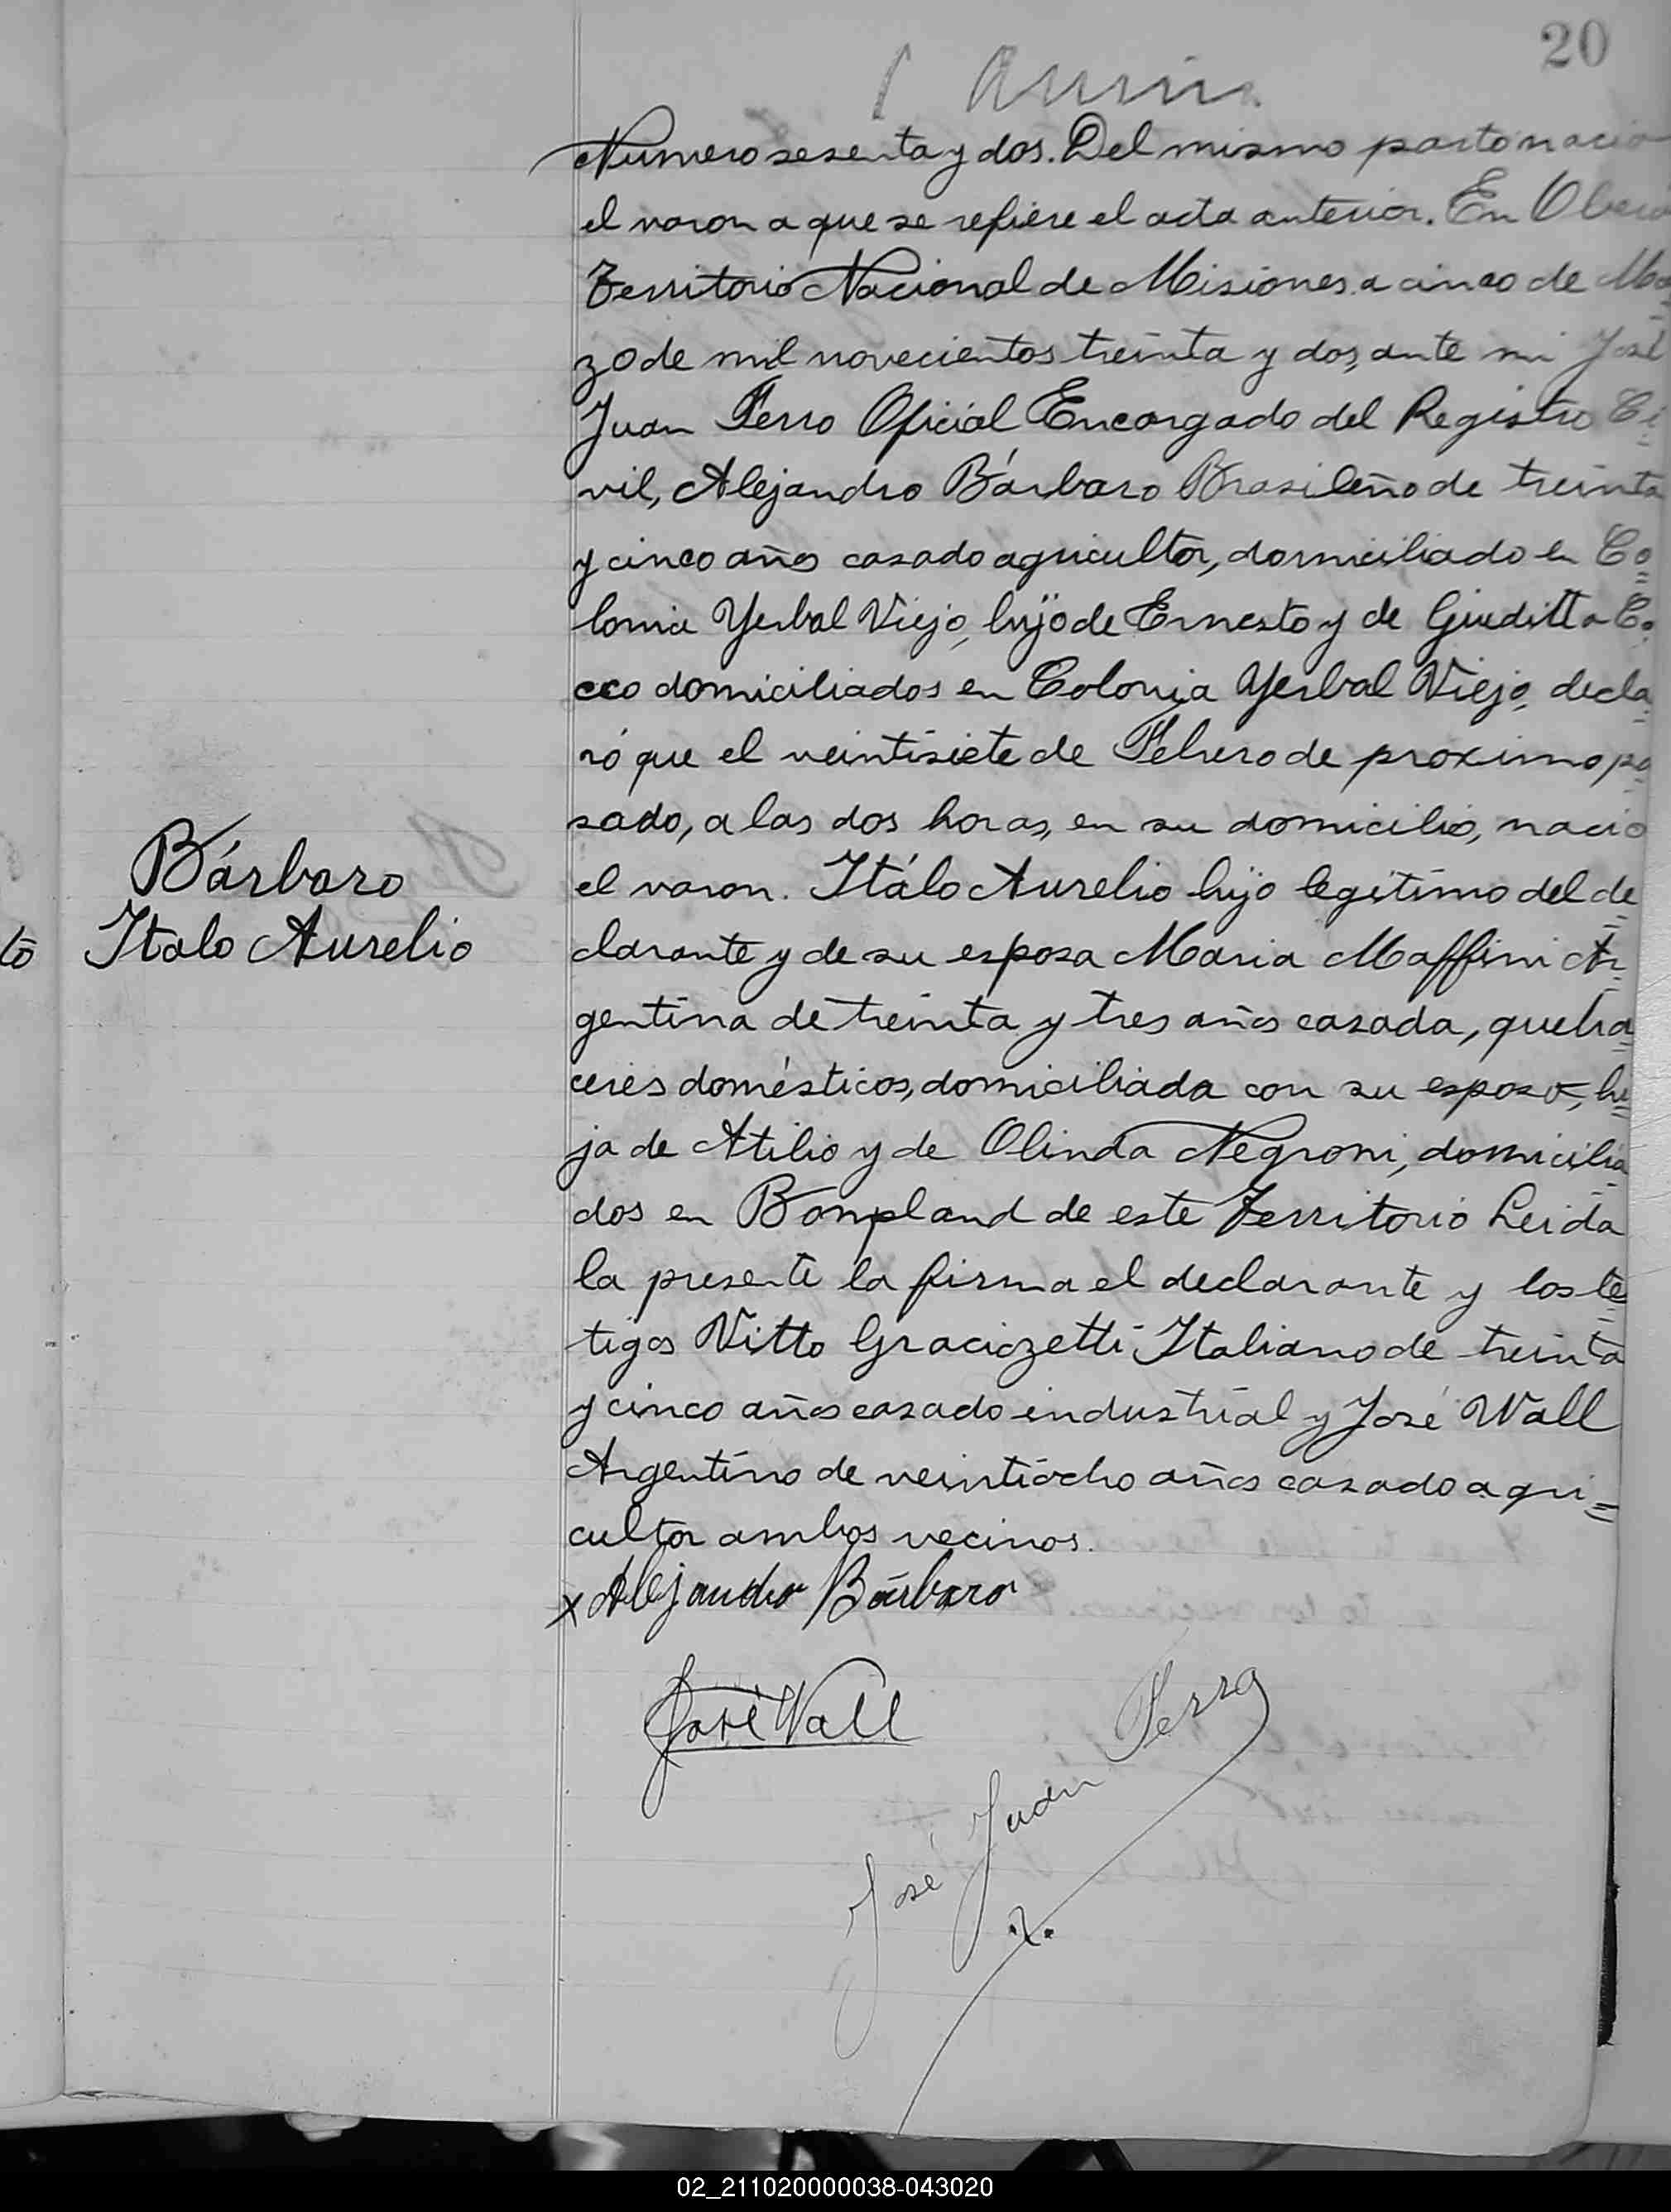 20
Numero sesenta y dos. Del mismo parto nacio
el varon a que se refiere el acta anterior. En Obera
Territorio Nacional de Misiones a cinco de Mar
zo de mil novecientos treinta y dos, ante mi José
Juan Ferro Oficial Encargado del Registro Ci
vil, Alejandro Bárbaro Brasileño de treinta
y cinco años casado agricultor, domiciliado en Co
lonia Yerbal Viejo, hijo de Ernesto y de Giuditta Co
cco domiciliados en Colonia Yerbal Viejo, decla
ró que el veintisiete de Febrero de proximo pa
sado, a las dos horas, en su domicilio, nacio
Bárbaro
el varon. Itálo Aurelio hijo legitimo del de
tó Italo Aurelio
clarante y de su esposa Maria Maffini Ar
gentina de treinta y tres años casada, queha
ceres domésticos, domiciliada con su esposo, hi
ja de Atilio y de Olinda Negroni, domicilia
dos en Bonpland de este Territorio Leida
la presente la firma el declarante y los te
tigos Vitto Graciozetti Italiano de treinta
y cinco años casado industrial y José Wall
Argentino de veintiocho años casado agri=
cultor ambos vecinos.
x Alejandro Bárbaro
José Wall
José Juan Ferro
02_211020000038-043020